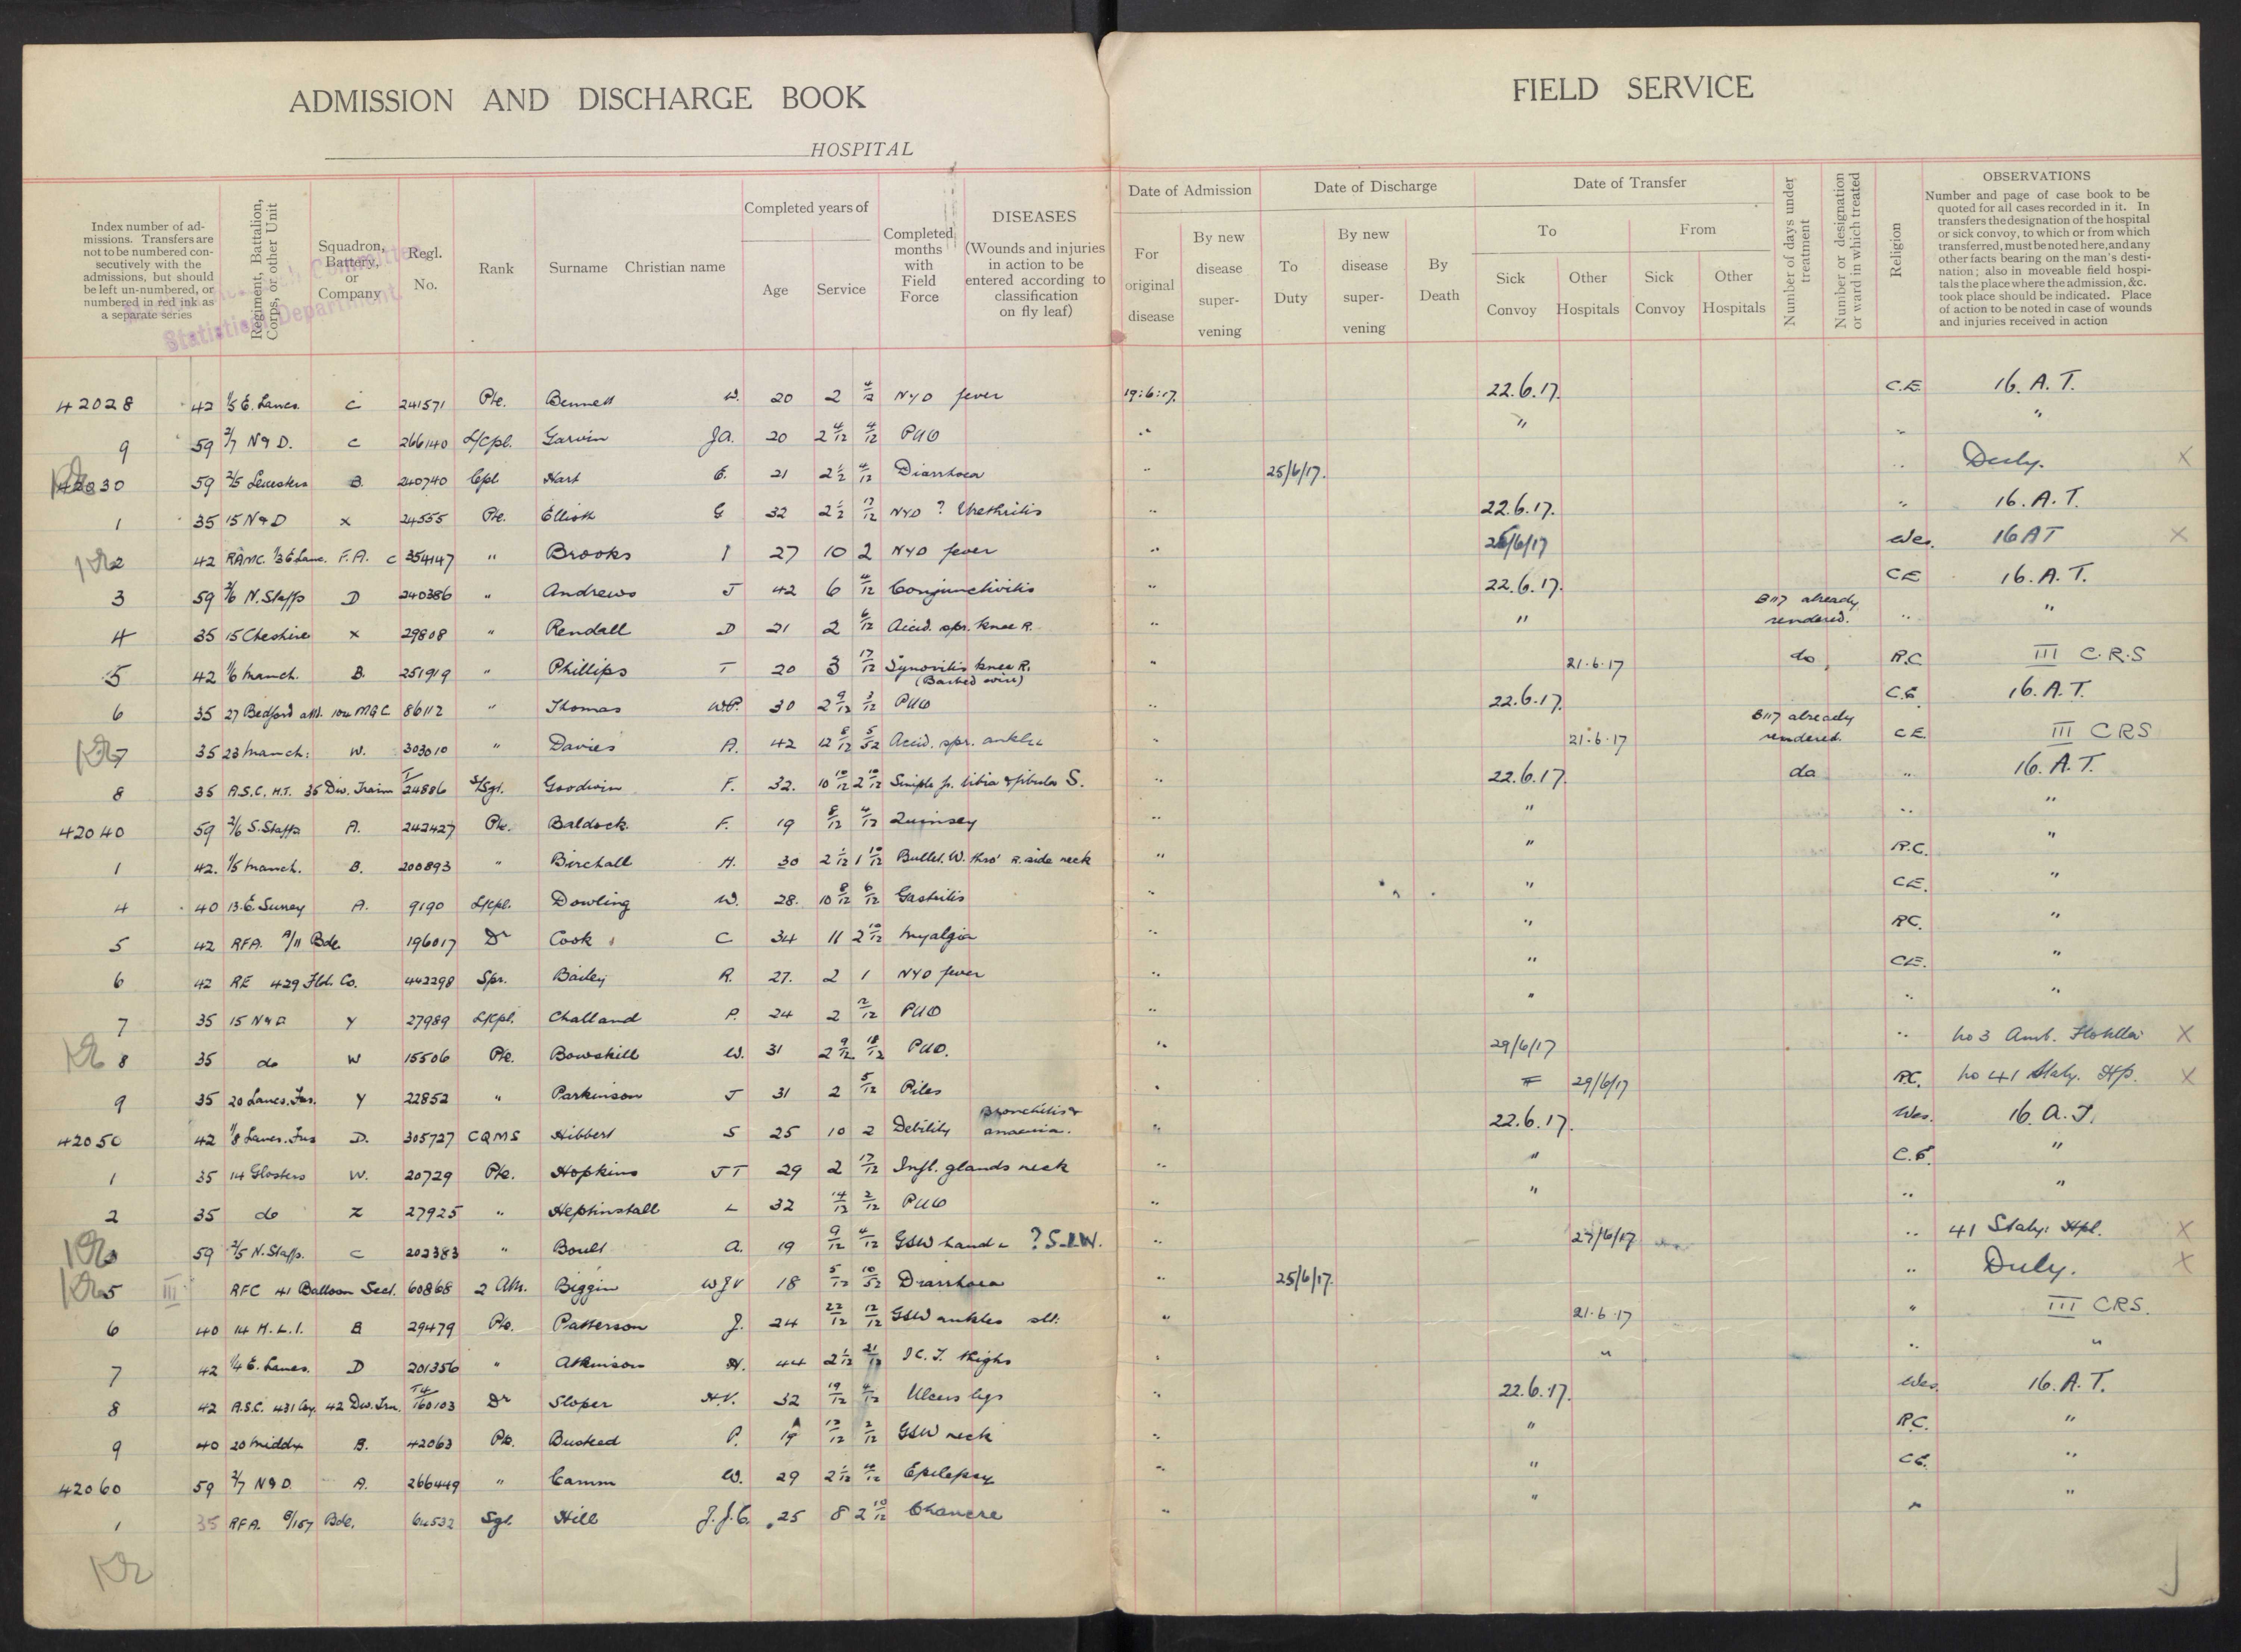 ADMISSION AND DISCHARGE BOOK
FIELD SERVICE
HOSPITAL
Index number of admissions. Transfers are not to be numbered consecutively with the admissions, but should be left un-numbered, or numbered in red ink as a separate series
Regiment, Battalion, Corps, or other Unit
Squadron, Battery, or Company
Regl. No.
Rank
Surname Christian name
Completed years of
Age
Service
Completed months with Field Force
DISEASES
(Wounds and injuries in action to be entered according to classification on fly leaf)
Date of Admission
For original disease
By new disease supervening
Date of Discharge
To Duty
By new disease supervening
By Death
Date of Transfer
To
From
Sick Convoy
Other Hospitals
Sick Convoy
Other Hospitals
Number of days under treatment
Number or designation or ward in which treated
Religion
OBSERVATIONS
Number and page of case book to be quoted for all cases recorded in it. In transfers the designation of the hospital or sick convoy, to which or from which transferred, must be noted here, and any other facts bearing on the man's destination; also in moveable field hospitals the place where the admission, &c. took place should be indicated. Place of action to be noted in case of wounds and injuries received in action
Statistical Department
42028 42 1/5 E. Lancs. C 241571 Pte. Bennett W. 20 2 4/12 NYD fever 19:6:17. 22.6.17. C.E. 16. A. T.
9 59 2/7 N & D. C 266140 L/Cpl. Garvin J.A. 20 2 4/12 4/12 PUO " " " "
42030 59 2/5 Leicesters B. 240740 Cpl. Hart E. 21 2 1/2 4/12 Diarrhoea " 25/6/17. " Duty. X
1 35 15 N & D X 24555 Pte. Elliott G 32 2 1/2 17/12 NYD ? Urethritis " 22.6.17. " 16. A. T.
2 42 RAMC. 1/3 E Lanc. F.A. C 354147 " Brooks 27 10 2 NYD fever " 25/6/17 Wes. 16 AT X
3 59 2/6 N. Staffs D 240386 " Andrews J 42 6 4/12 Conjunctivitis " 22.6.17. CE 16. A. T.
4 35 15 Cheshire X 29808 " Rendall D 21 2 6/12 Accid. spr. knee R. " " B117 already rendered. " "
5 42 1/6 Manch. B. 251919 " Phillips T 20 3 17/12 Synovitis knee R. (Barbed wire) " 21.6.17 do, R.C III C.R.S
6 35 27 Bedford att. 104 MGC 86112 " Thomas W.P. 30 2 9/12 3/12 PUO " 22.6.17. C.E 16. A. T.
7 35 23 Manch: W. 303010 " Davies A. 42 12 8/12 5/52 Accid. spr. ankle L " 21.6.17 B117 already rendered. C.E. III CRS
8 35 A.S.C. H.T. 35 Div. Train T/24886 S/Sgt. Goodwin F. 32. 10 10/12 2 10/12 Simple fr. tibia & fibula S. " 22.6.17. do " 16. A. T.
42040 59 2/6 S. Staffs A. 242427 Pte. Baldock F. 19 8/12 4/12 Quinsey " " " "
1 42. 1/5 Manch. B. 200893 " Birchall H. 30 2 1/12 1 10/12 Bullet. W. thro' R. side neck " " R.C. "
4 40 13. E. Surrey A. 9190 L/Cpl. Dowling W. 28. 10 8/12 6/12 Gastritis " " CE. "
5 42 RFA. A/11 Bde 196017 Dr Cook C 34 11 2 10/12 Myalgia " " RC. "
6 42 RE 429 Fld. Co. 442298 Spr. Bailey R. 27. 2 1 NYD fever " " CE. "
7 35 15 N & D Y 27989 L/Cpl. Challand P. 24 2 PUO " " " "
8 35 do W 15506 Pte. Bowskill W. 31 2 9/12 18/12 PUO. " 29/6/17 " No 3 Amb. X
9 35 20 Lancs. Fus. Y 22852 " Parkinson J 31 2 5/12 Piles " 29/6/17 R.C. No 41 Staty. Hp. X
42050 42 1/8 Lancs. Fus D. 305727 CQMS Hibbert S 25 10 2 Debility Bronchitis & anaemia. " 22.6.17. Wes. 16. A. T.
1 35 14 Glosters W. 20729 Pte. Hopkins JT 29 2 17/12 Infl. glands neck " " C.E. "
2 35 do Z 27925 " Heptinstall L 32 14/12 2/12 PUO " " " "
3 59 2/5 N. Staffs. C 202383 " Boult A. 19 9/12 4/12 GSW hand L ? S.I.W. " 27/6/17 " 41 Staty. Hpl. X
5 III RFC 41 Balloon Sect. 60868 2 AM. Biggin WJV 18 5/12 10/52 Diarrhoea " 25/6/17. " Duly. X
6 40 14 H.L.I. B 29479 Pte. Patterson J. 24 22/12 12/12 GSW ankles slt: " 21.6.17 " III CRS.
7 42 1/4 E. Lancs. D 201356 " Atkinson H. 44 2 1/12 21/12 I.C.T. thighs " " " "
8 42 A.S.C. 431 Coy. 42 Div. Trn. T4/160103 Dr Sloper H.V. 32 19/12 4/12 Ulcers legs " 22.6.17. Wes. 16. A. T.
9 40 20 Middx B. 42063 Pte. Busteed P. 19 2/12 GSW neck " " R.C. "
42060 59 2/7 N & D. A. 266449 " Camm W. 29 2 1/12 Epilepsy " " C.E. "
1 35 RFA. B/157 Bde. 64532 Sgt Hill J.J.C. 25 8 2 10/12 Chancre " " " "